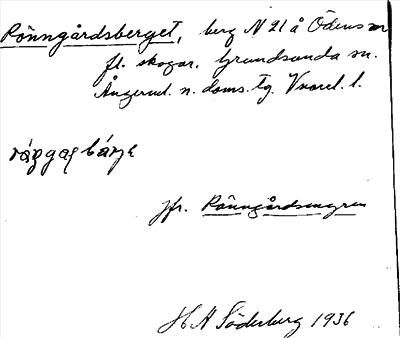 Rönngårdsberget, berg N 21 å Ödens m
fl. skogar, Grundsunda sn.
Ångerml. n. doms. tg. Vnorrl. l.
jfr. Rönngårdsmyren
H A Söderberg 1936